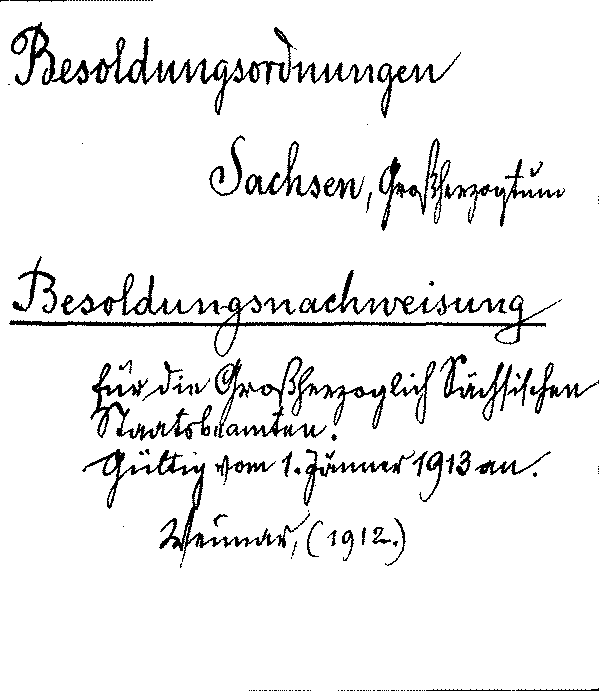 Besoldungsordnungen
Sachsen, Großherzogtum
Besoldungsnachweisung
für die Großherzoglich Sächsischen
Staatsbeamten.
Gültig vom 1. Jänner 1913 an.
Weimar, (1912.)